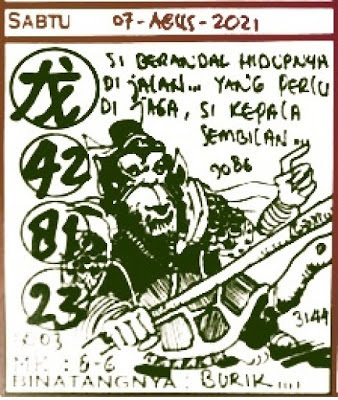 SABTU 07-AGUS-2021
龙
SI BERANDAL HIDUPNYA
DI JALAN... YANG PERLU
DI JAGA, SI KEPALA
SEMBILAN...
9086
42
81
23
3144
MK : 6-6
BINATANGNYA : BURIK....